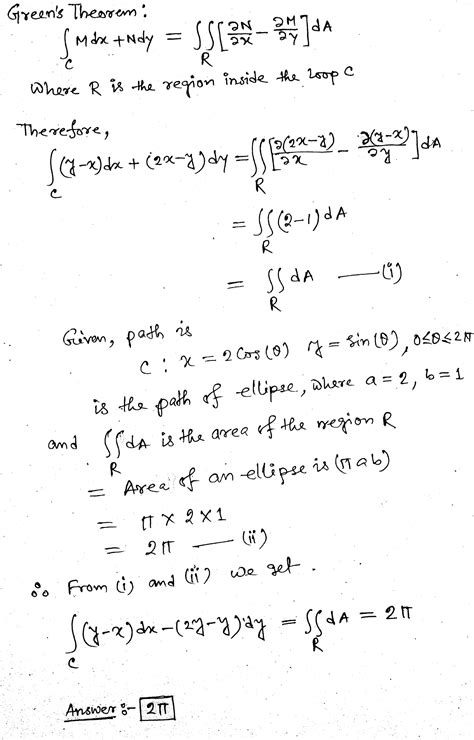 Green's Theorem:
∫_C Mdx + Ndy = ∬_R [∂N/∂x - ∂M/∂y] dA
Where R is the region inside the loop C
Therefore,
∫_C (y-x)dx + (2x-y)dy = ∬_R [∂(2x-y)/∂x - ∂(y-x)/∂y] dA
= ∬_R (2-1) dA
= ∬_R dA —(i)
Given, path is
C : x = 2 Cos(θ) y = Sin(θ), 0≤θ≤2π
is the path of ellipse, where a = 2, b = 1
and ∬_R dA is the area of the region R
= Area of an ellipse is (πab)
= π × 2 × 1
= 2π —(ii)
∴ From (i) and (ii) we get.
∫_C (y-x)dx - (2y-y)dy = ∬_R dA = 2π
Answer :- 2π